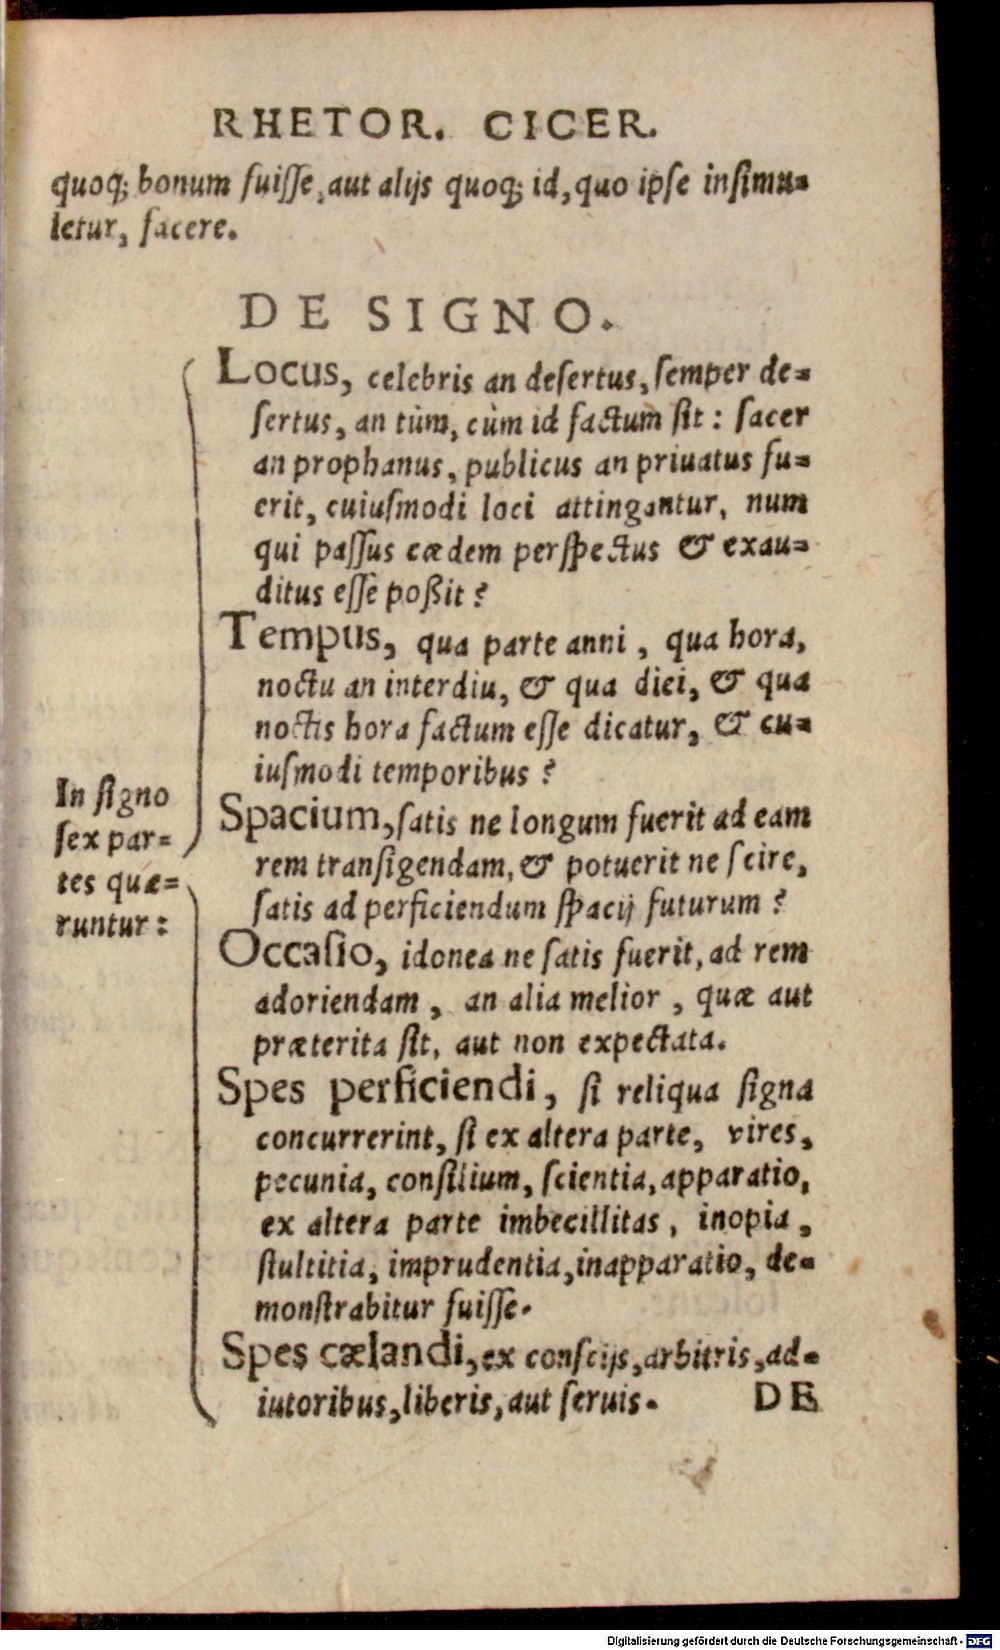 RHETOR. CICER.
quoq; bonum fuiſſe, aut alijs quoq; id, quo ipſe inſimu=
letur, facere.
DE SIGNO.
Locus, celebris an deſertus, ſemper de=
ſertus, an tùm, cùm id factum ſit: ſacer
an prophanus, publicus an priuatus fu=
erit, cuiuſmodi loci attingantur, num
qui paſſus cædem perſpectus & exau=
ditus eſſe poßit?
Tempus, qua parte anni, qua hora,
noctu an interdiu, & qua diei, & qua
noctis hora factum eſſe dicatur, & cu=
iuſmodi temporibus?
In ſigno
ſex par=
tes quæ=
runtur:
Spacium, ſatis ne longum fuerit ad eam
rem tranſigendam, & potuerit ne ſcire,
ſatis ad perficiendum ſpacij futurum?
Occaſio, idonea ne ſatis fuerit, ad rem
adoriendam, an alia melior, quæ aut
præterita ſit, aut non expectata.
Spes perficiendi, ſi reliqua ſigna
concurrerint, ſi ex altera parte, vires,
pecunia, conſilium, ſcientia, apparatio,
ex altera parte imbecillitas, inopia,
ſtultitia, imprudentia, inapparatio, de=
monſtrabitur fuiſſe.
Spes cælandi, ex conſcijs, arbitris, ad=
iutoribus, liberis, aut ſeruis.
DE
Digitalisierung gefördert durch die Deutsche Forschungsgemeinschaft - DFG